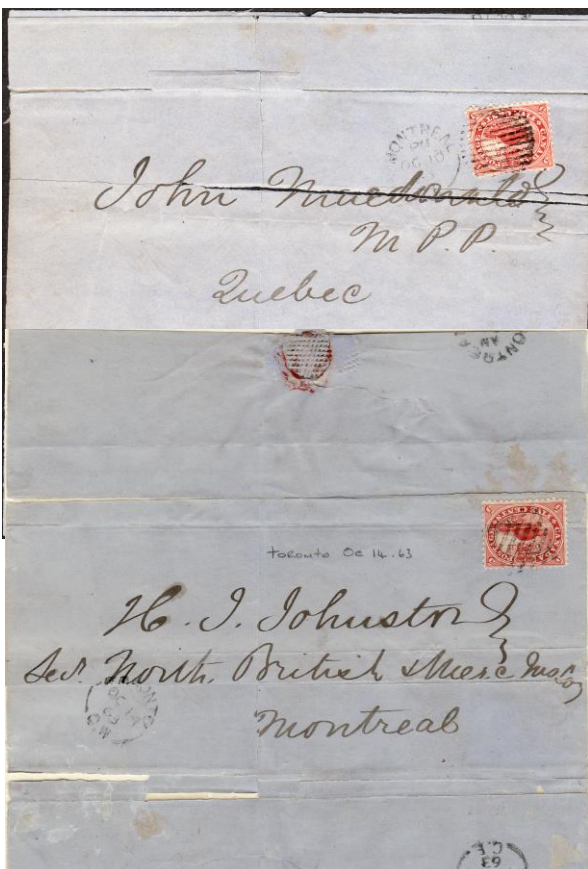 MONTREAL
PM
OC 10
John Macdonald
M P.P.
Quebec
MONTREAL
AM
Toronto Oc 14.63
H. J. Johnston
Secy. North. British & Merc Ins Co
Montreal
TORONTO
OC 14
63
63
C.E.